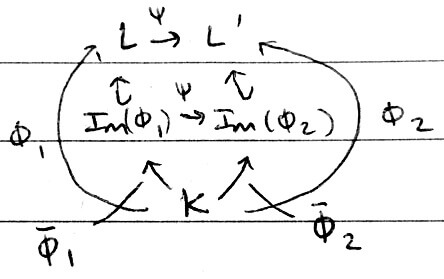 ψ
L → L'
ψ
Im(Φ₁) → Im(Φ₂)
Φ₁ Φ₂
K
Φ̄₁ Φ̄₂